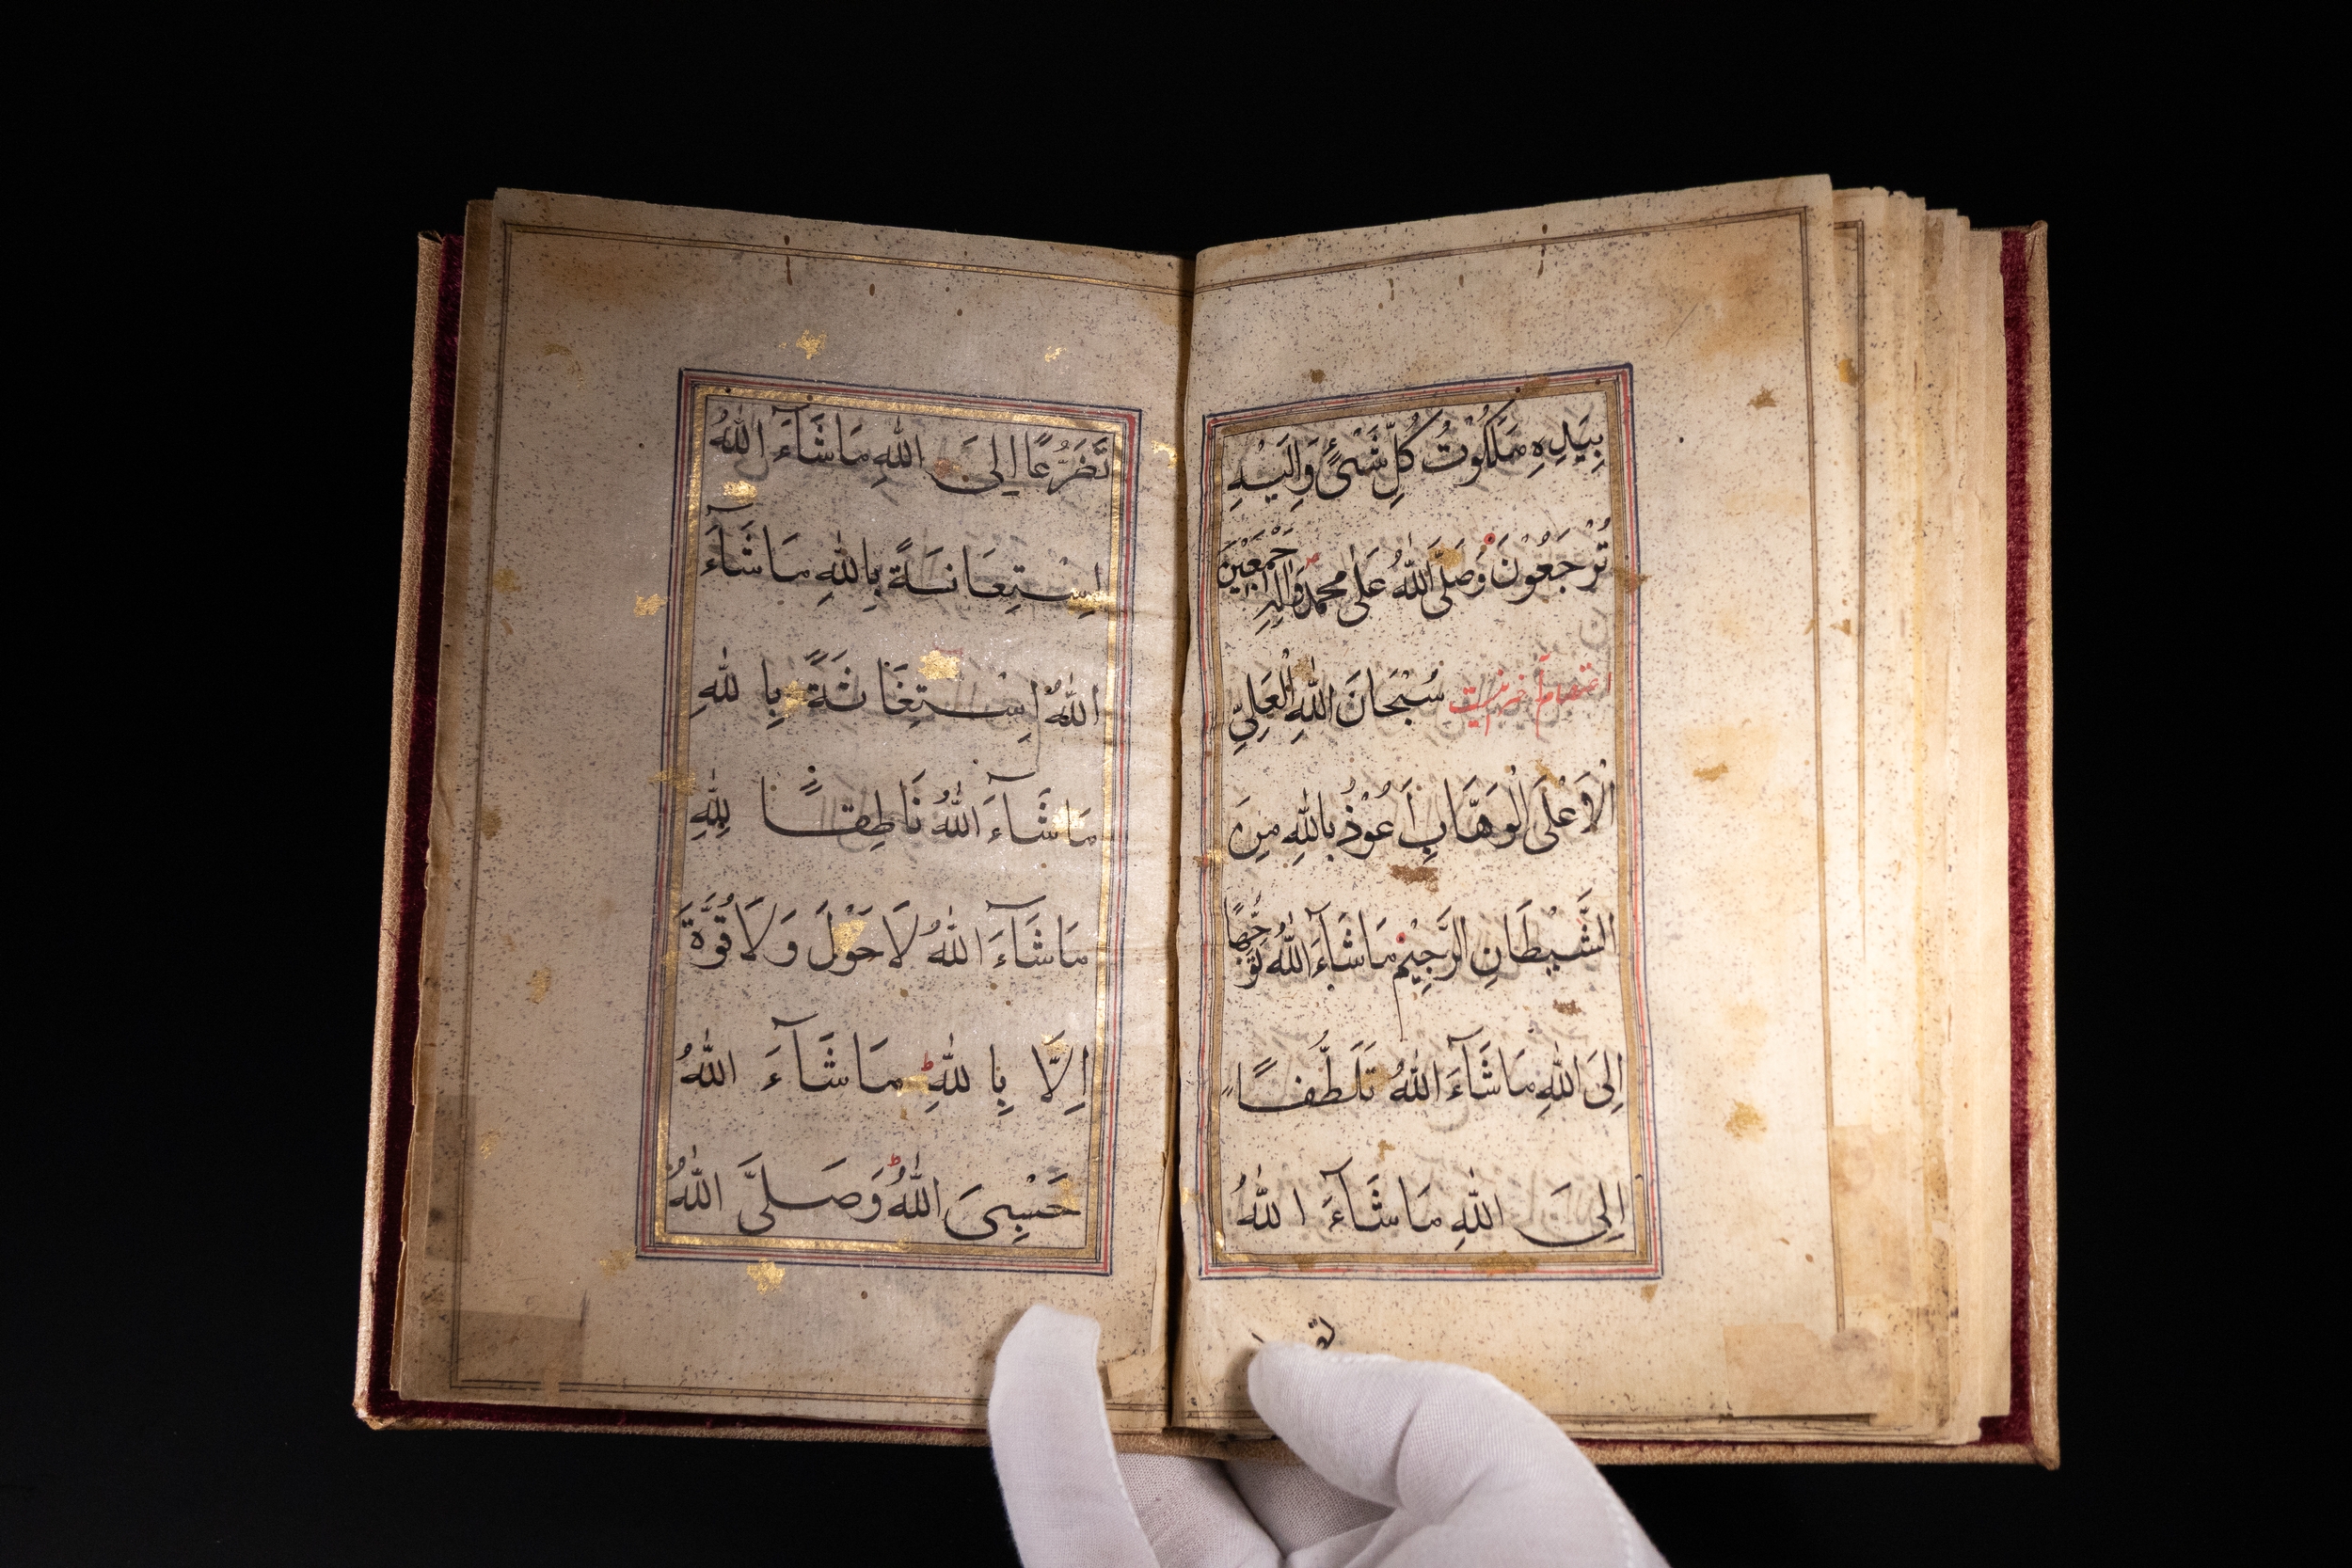 بِيَدِهِ مَلَكُوْتُ كُلِّ شَيْءٍ وَاِلَيْهِ
تُرْجَعُوْنَ وَصَلَّى اللّٰهُ عَلٰى مُحَمَّدٍ وَاٰلِهِ اَجْمَعِيْنَ
اعتصام آخر اینست سُبْحَانَ اللّٰهِ الْعَلِيِّ
الْاَعْلَى الْوَهَّابِ اَعُوْذُ بِاللّٰهِ مِنَ
الشَّيْطَانِ الرَّجِيْمِ مَاشَآءَ اللّٰهُ تَوَجُّهًا
اِلَى اللّٰهِ مَاشَآءَ اللّٰهُ تَلَطُّفًا
اِلَى اللّٰهِ مَاشَآءَ اللّٰهُ
تَضَرُّعًا اِلَى اللّٰهِ مَاشَآءَ اللّٰهُ
اِسْتِعَانَةً بِاللّٰهِ مَاشَآءَ
اللّٰهُ اِسْتِغَاثَةً بِاللّٰهِ
مَاشَآءَ اللّٰهُ لِلّٰهِ
مَاشَآءَ اللّٰهُ لَا حَوْلَ وَلَا قُوَّةَ
اِلَّا بِاللّٰهِ مَاشَآءَ اللّٰهُ
حَسْبِيَ اللّٰهُ وَصَلَّى اللّٰهُ